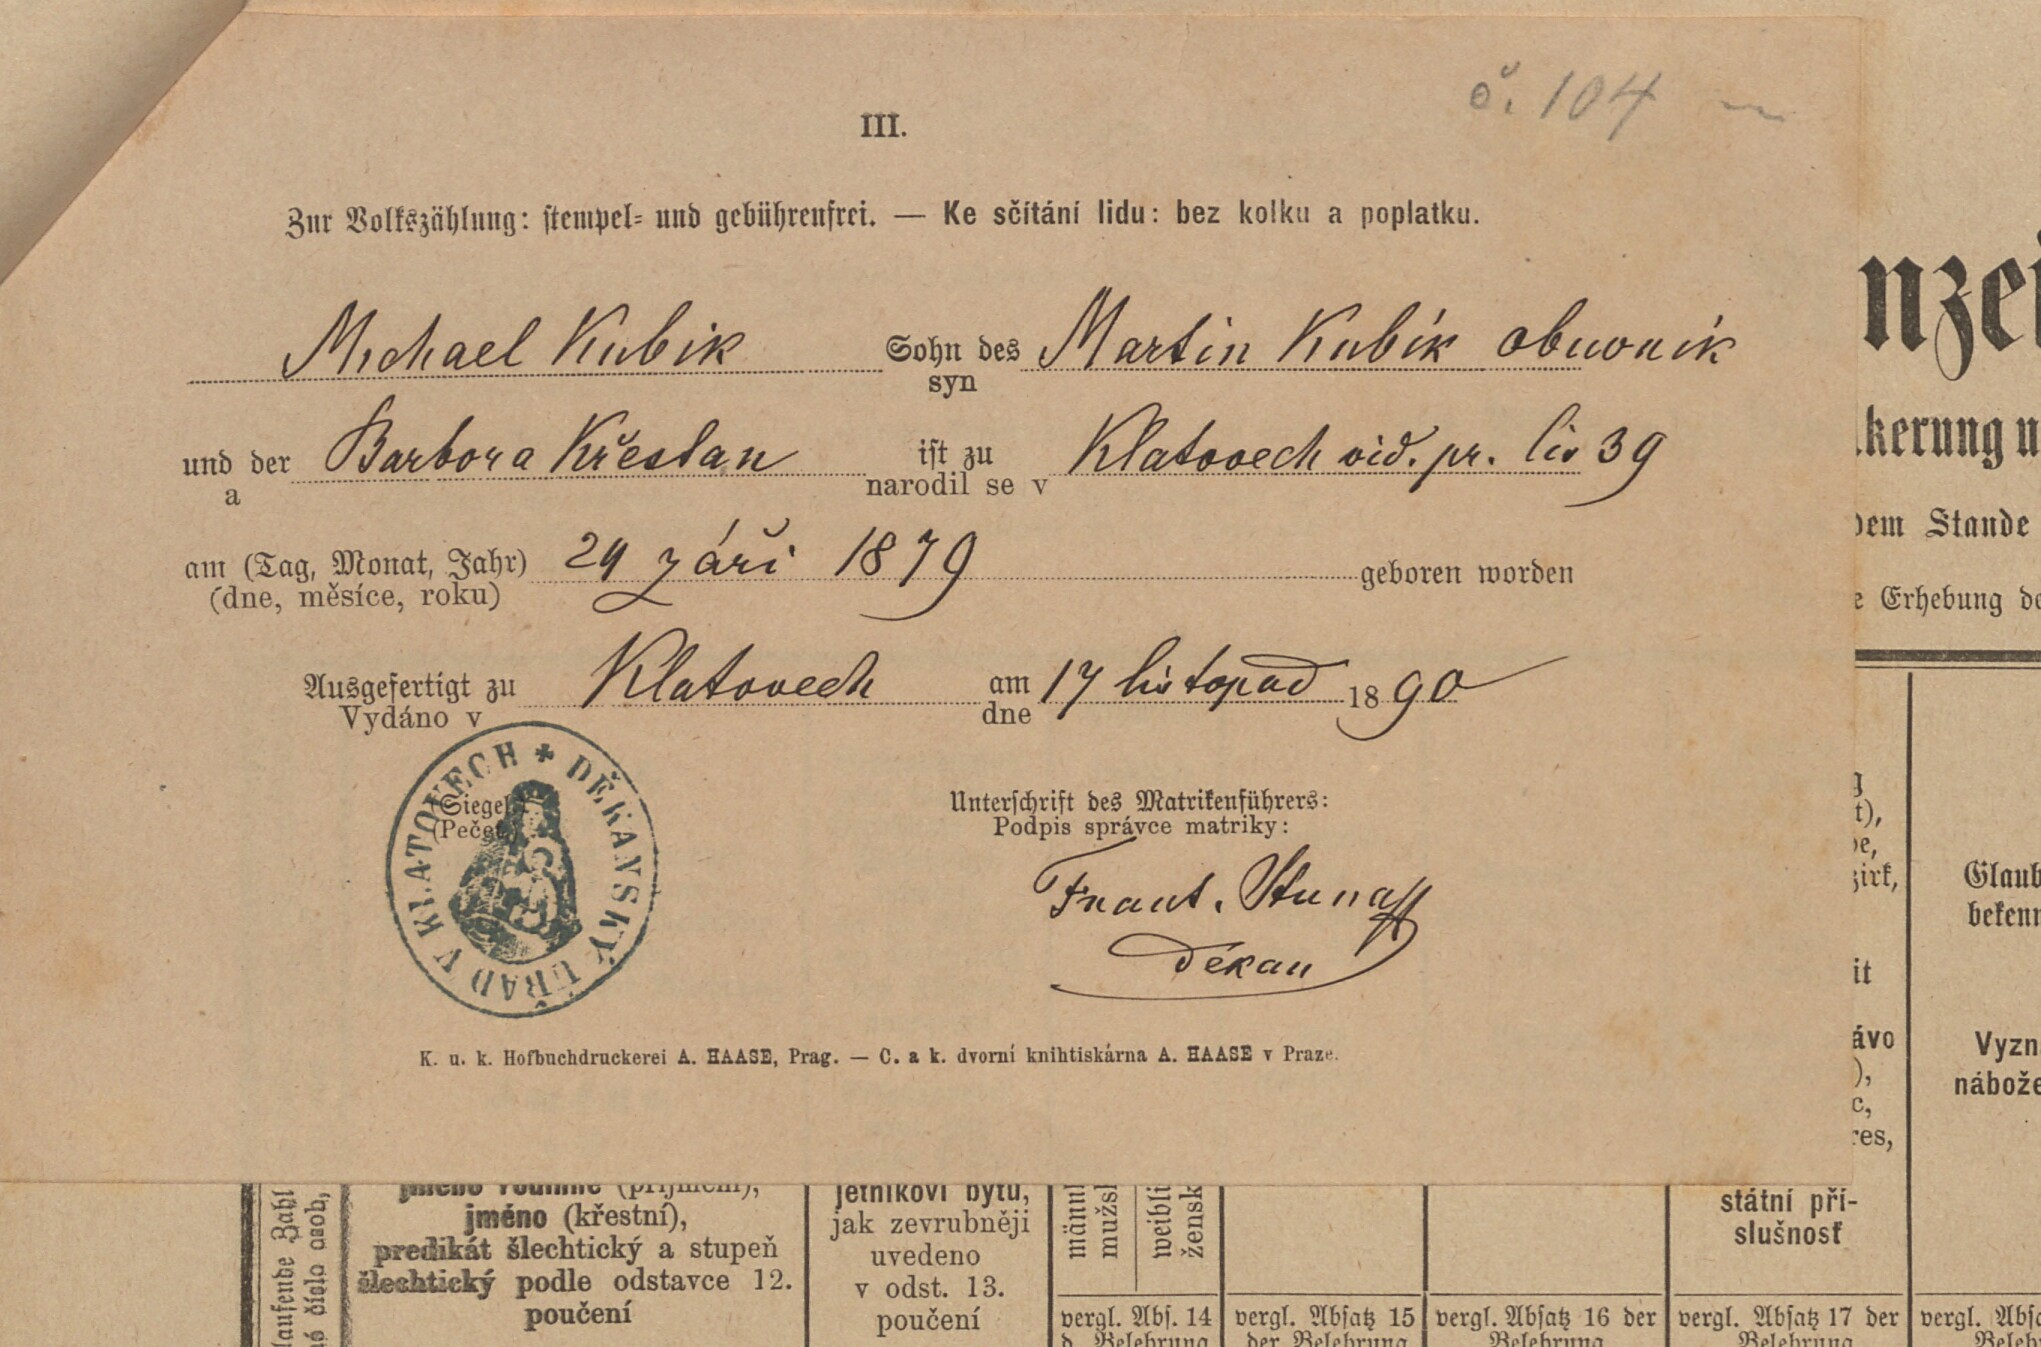 č. 104
III.
Zur Volkszählung: stempel- und gebührenfrei. — Ke sčítání lidu: bez kolku a poplatku.
Michael Kubik Sohn des Martin Kubík obuvník
syn
und der Barbora Křeslan ist zu Klatovech vid. pr. čís 39
a narodil se v
am (Tag, Monat, Jahr) 29 září 1879 geboren worden
(dne, měsíce, roku)
Ausgefertigt zu Klatovech am 17 listopad 1890
Vydáno v dne
(Siegel)
(Pečeť)
DĚKANSKÝ ÚŘAD V KLATOVECH
Unterschrift des Matrikenführers:
Podpis správce matriky:
Frant.
Děkan
K. u. k. Hofbuchdruckerei A. HAASE, Prag. — C. a k. dvorní knihtiskárna A. HAASE v Praze.
nzei
lkerung u
dem Stande
e Erhebung de
g
t),
be,
zirk,
Glaub
bekenn
it
ávo
),
c,
res,
Vyzn
nábože
laufende Zahl
né číslo osob,
jméno rodinné (příjmení),
jméno (křestní),
predikát šlechtický a stupeň
šlechtický podle odstavce 12.
poučení
jetníkovi bytu,
jak zevrubněji
uvedeno
v odst. 13.
poučení
männl
mužsk
weibli
žensk
státní pří-
slušnosť
vergl. Abs. 14
d. Belehrung
vergl. Absatz 15
der Belehrung
vergl. Absatz 16 der
Belehrung
vergl. Absatz 17 der
Belehrung
vergl. Absa
Beleh